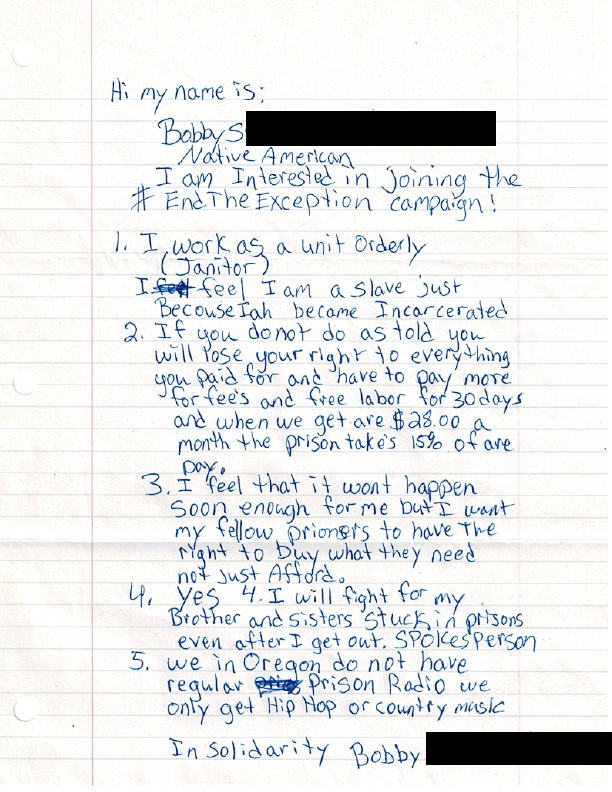 Hi my name is:
Bobby S
Native American
I am Interested in joining the
# EndTheException campaign!
1. I work as a unit Orderly
(Janitor)
I feel I am a slave just
Becouse Iah became Incarcerated
2. If you donot do as told you
will lose your right to everything
you paid for and have to pay more
for fee's and free labor for 30 days
and when we get are $28.00 a
month the prison take's 15% of are
pay.
3. I feel that it wont happen
soon enough for me but I want
my fellow prioners to have the
right to buy what they need
not just Afford.
4. yes 4. I will fight for my
Brother and sisters stuck in prisons
even after I get out. SPOKesPerson
5. we in Oregon do not have
regular Prison Radio we
only get Hip Hop or country music
In Solidarity Bobby